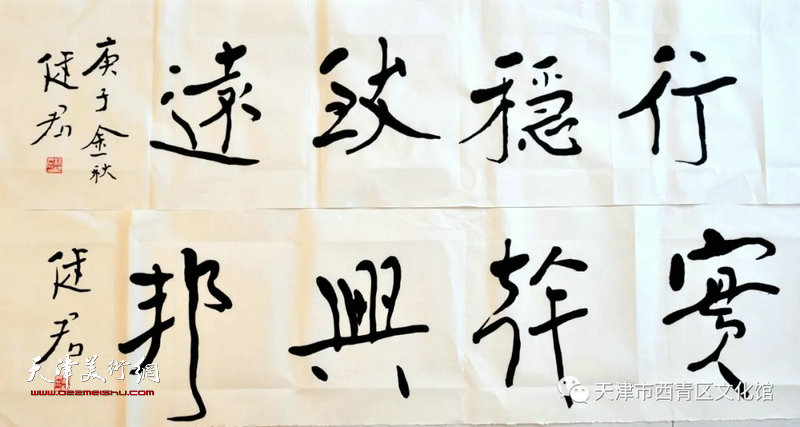 行穩致遠
庚子金秋
健君
實幹興邦
健君
天津美術網
www.022meishu.com
天津市西青区文化馆